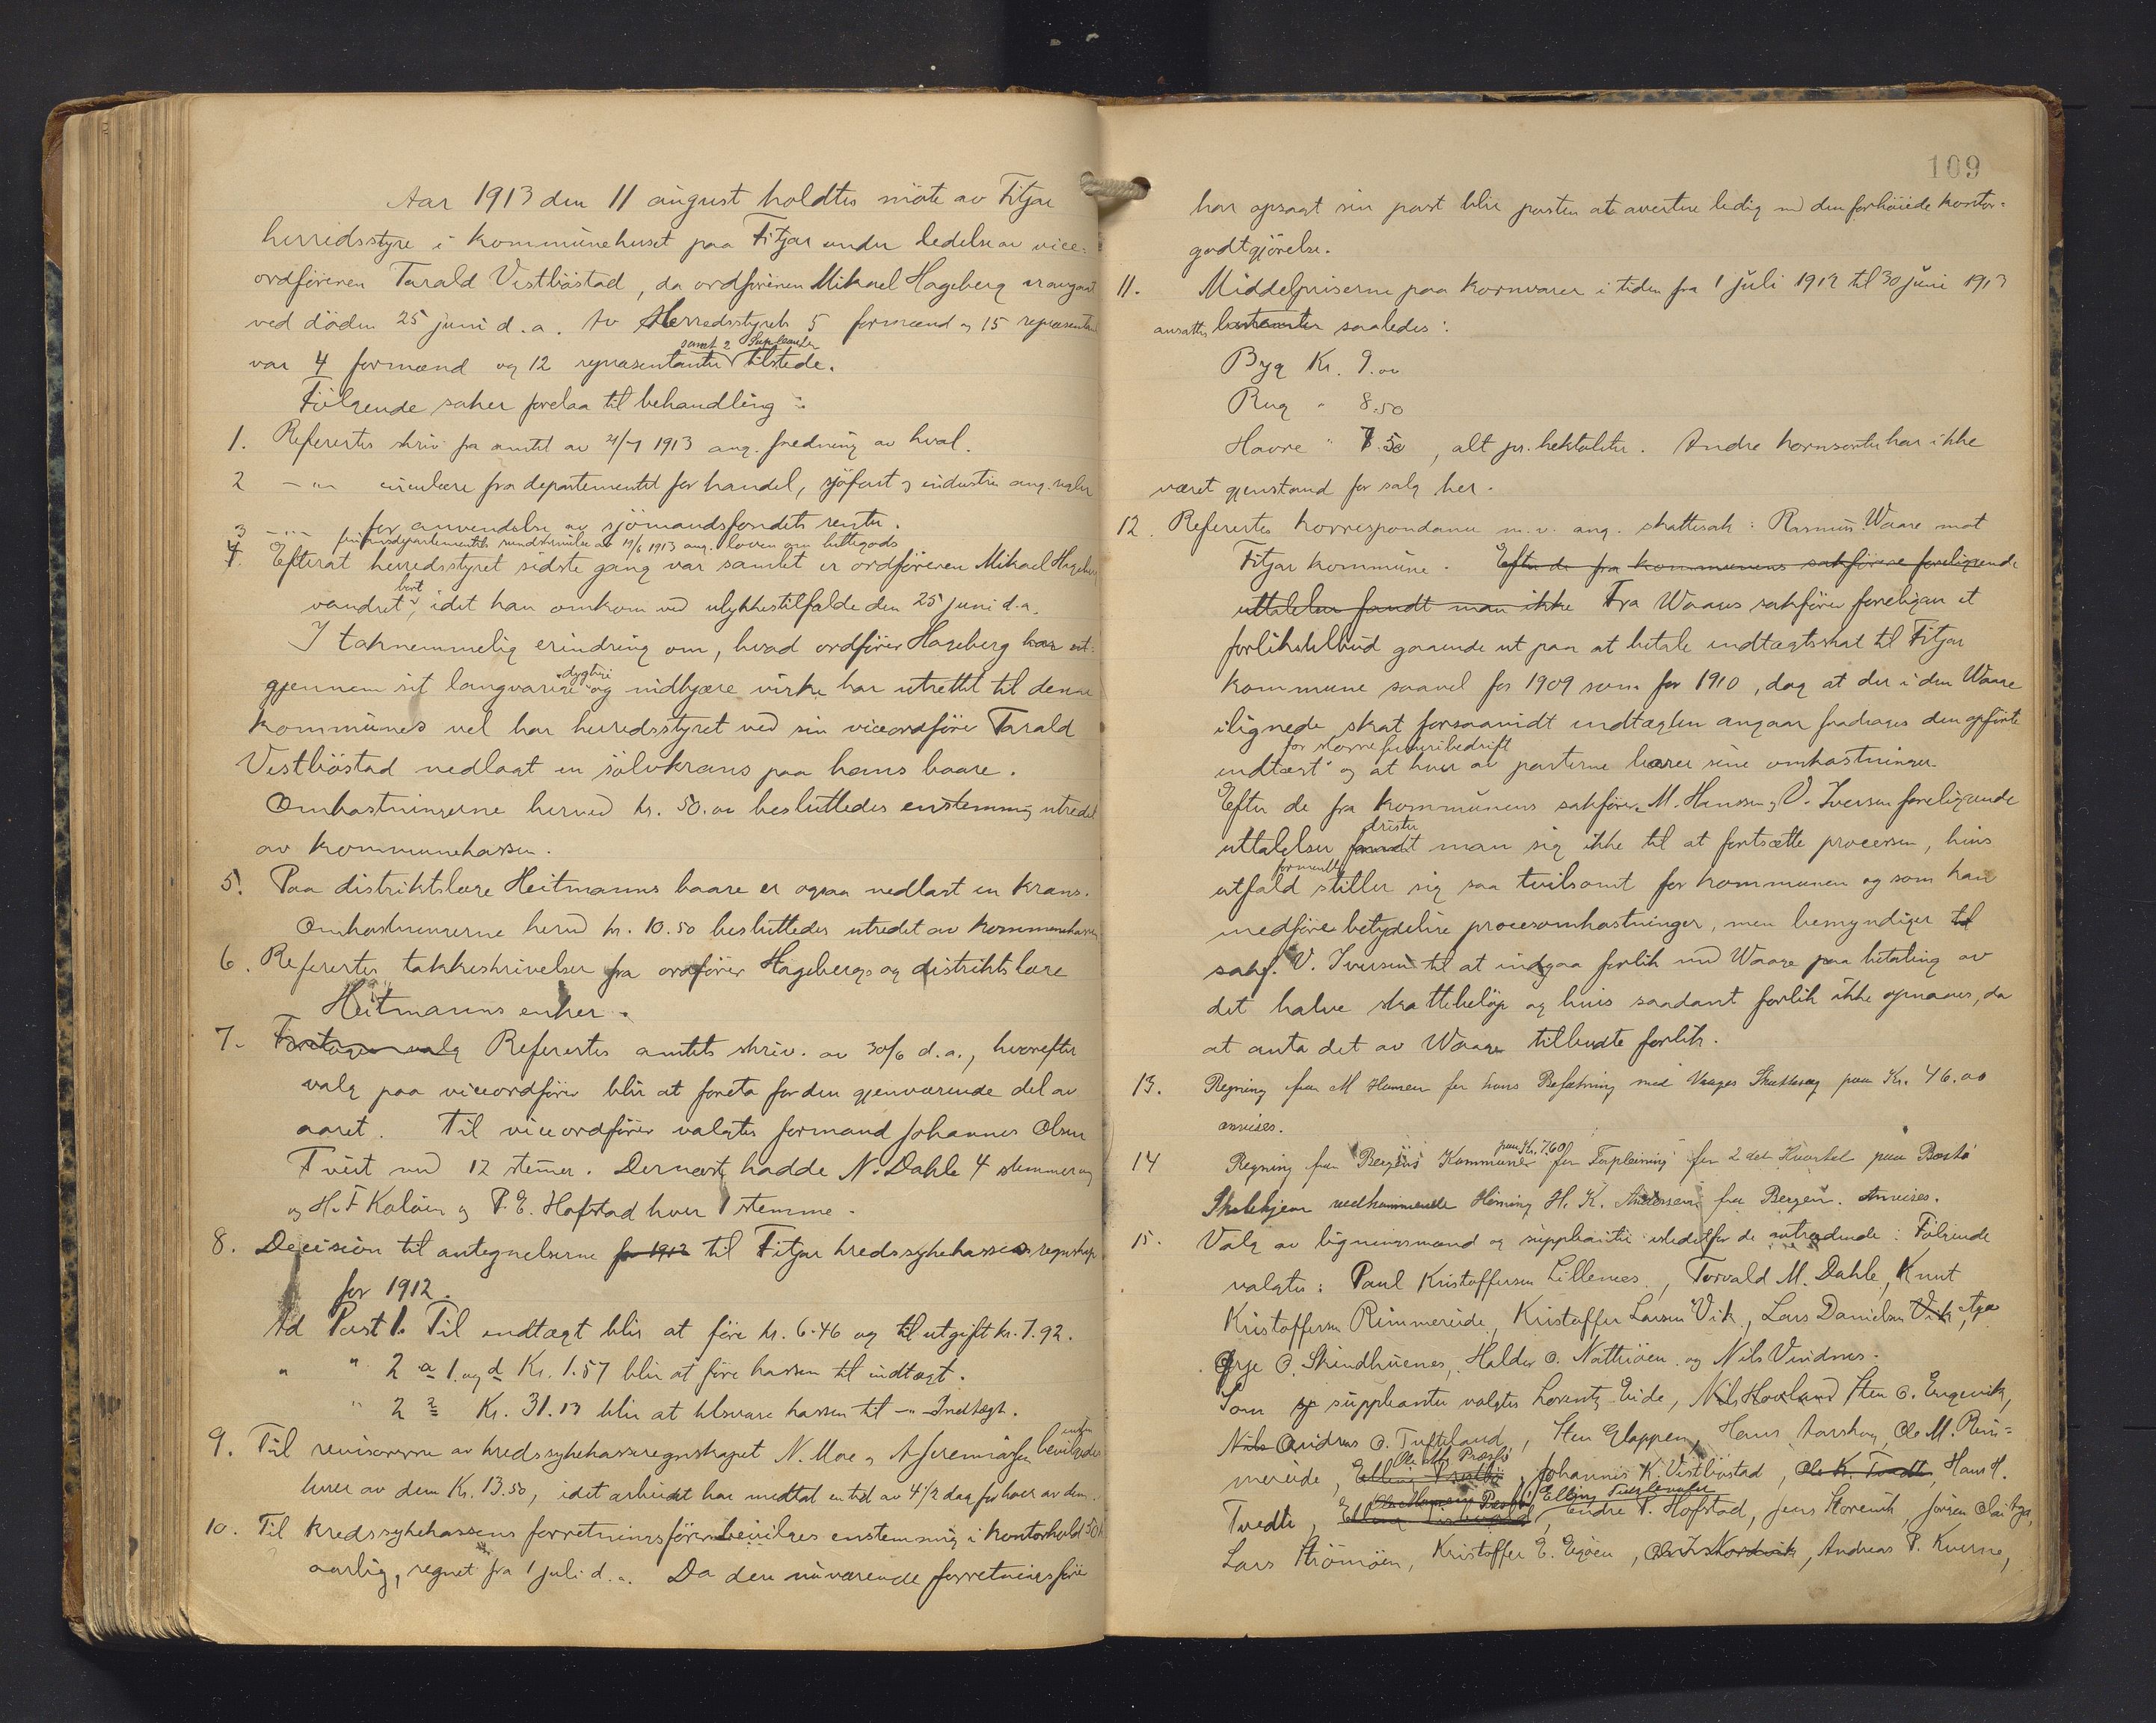 Aar 1913 den 11 august holdtes möte av Fitjar
herredsstyre i kommünehuset paa Fitjar under ledelse av vice-
ordföreren Tarald Vestböstad, da ordföreren Mikael Hageberg er avgaat
ved döden 25 juni d.a. Av Herredsstyrets 5 formænd og 15 repræsentan
samt 2 Supleanter
var 4 formænd og 12 repræsentanter tilstede.
Fölgende saker forelaa til behandling :
1. Referertes skriv fra amtet av 21/7 1913 ang. fredning av hval.
2 -"- cirkulære fra departementet for handel, sjöfart og industri ang. regler
for anvendelse av sjömandsfondets renter.
3 -"- finansdepartementets rundskrivelse av 19/6 1913 ang. loven om hittegods
4. Efterat herredsstyret sidste gang var samlet er ordföreren Mikael Hageberg
vandret bort, idet han omkom ved ulykkestilfælde den 25 juni d.a.
I taknemmelig erindring om, hvad ordförer Hageberg har
gjennem sit langvarige dygtige og nidkjære virke har utrettet til denne
kommünes vel har herredsstyret ved sin viceordförer Tarald
Vestböstad nedlagt en sölvkrans paa hans baare.
Omkostningerne herved kr. 50.00 besluttedes enstemmig utredet
av kommunekassen.
5. Paa distriktslæge Heitmanns baare er ogsaa nedlagt en krans.
Omkostningerne herved kr. 10.50 besluttedes utredet av kommunekassen
6. Referertes takkeskrivelser fra ordförer Hagebergs og distriktslæge
Heitmanns enker.
7. Foretages valg Referertes amtets skriv. av 30/6 d.a., hvorefter
valg paa viceordförer blir at foreta for den gjenværende del av
aaret. Til viceordförer valgtes formand Johannes Olsen
Tveit med 12 stemmer. Dernæst hadde N. Dahle 4 stemmer og
og H. F Kalöen og P. E. Hofstad hver 1 stemme.
8. Decision til antegnelserne for 1912 til Fitjar kredssykekasses regnskap
for 1912.
Ad Post 1. Til indtægt blir at före kr. 6.46 og til utgift kr. 7.92.
" " 2 a 1. og d Kr. 1.57 blir at före kassen til indtægt.
" 2 Kr. 31.13 blir at tilsvare kassen til -"- Indtægt.
9. Til revisorerne av kredssykekasseregnskapet N. Moe og A Jeremiassen bevilgedes
hver av dem Kr. 13.50, idet arbeidet har medtat en tid av 4 1/2 dag for hver av dem.
10. Til kredssykekassens forretningsförer bevilges enstemmig i kontorhold 50 kr
aarlig, regnet fra 1 juli d.a. Da den nuværende forretningsförer
109
har opsagt sin post blir posten at avertere ledig med den forhöiede kontor-
godtgjörelse.
11. Middelpriserne paa kornvarer i tiden fra 1 juli 1912 til 30 juni 1913
ansattes saaledes :
Byg Kr. 9.00
Rug " 8.50
Havre " 7.50, alt pr. hektoliter. Andre kornsorter har ikke
været gjenstand for salg her.
12. Referertes korrespondance m.v. ang. skattesak : Rasmus Waage mot
Fitjar kommune. Efter de fra kommunens sakförere foreliggende
uttalelser fandt man ikke Fra Waages sakförer foreligger et
forlikstilbud gaaende ut paa at betale indtægtsskat til Fitjar
kommune saavel for 1909 som for 1910, dog at der i den Waage
ilignede skat forsaavidt indtægten angaar fradrages den opförte
for större fiskeribedrift
indtægt og at hver av parterne bærer sine omkostninger.
Efter de fra kommünens sakförere M. Hansen og V. Iversen foreliggende
uttalelser drister fandt man sig ikke til at fortsætte processen, hvis
formentlig
utfald stiller sig saa tvilsomt for kommunen og som kan
medföre betydelige procesomkostninger, men bemyndiger til
sakf. V. Iversen til at indgaa forlik med Waage paa betaling av
det halve skattebelöp og hvis saadant forlik ikke opnaaes, da
at anta det av Waage tilbudte forlik.
13. Regning fra M Hansen for hans Befatning med Vaages Skattesag paa Kr. 46.00
anvises.
14 Regning fra Bergens Kommune paa Kr. 7.60 for Forpleining for 2det Kvartal paa Bastö
Skolehjem vedkommende Henning H. K. Andersen fra Bergen. Anvises.
15. Valg av ligningsmænd og suppleanter istedetfor de uttrædende : Fölgende
valgtes : Paul Kristoffersen Lillenes, Torvald M. Dahle, Knut
Kristoffersen Rimmereide, Kristoffer Larsen Vik, Lars Danielsen Vik, Aga
Brje O. Skindhuenes, Halder O. Nattröen og Nils Vindnes.
Som suppleanter valgtes Lorentz Eide, Nils Hovland Sten O. Engevik,
Nils Andreas O. Tufteland, Sten Glappen, Hans Aarskog, Ole M. Rim-
mereide, Johannes K. Vestböstad, Ole K. Tvedt, Hans H.
Tvedte, Endre P. Hofstad, Jens Storevik,
Lars Strömöen, Kristoffer E. Engöen, Andreas P. Kverne,